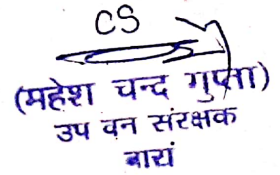 CS
(महेश चन्द गुप्ता)
उप वन संरक्षक
बारां